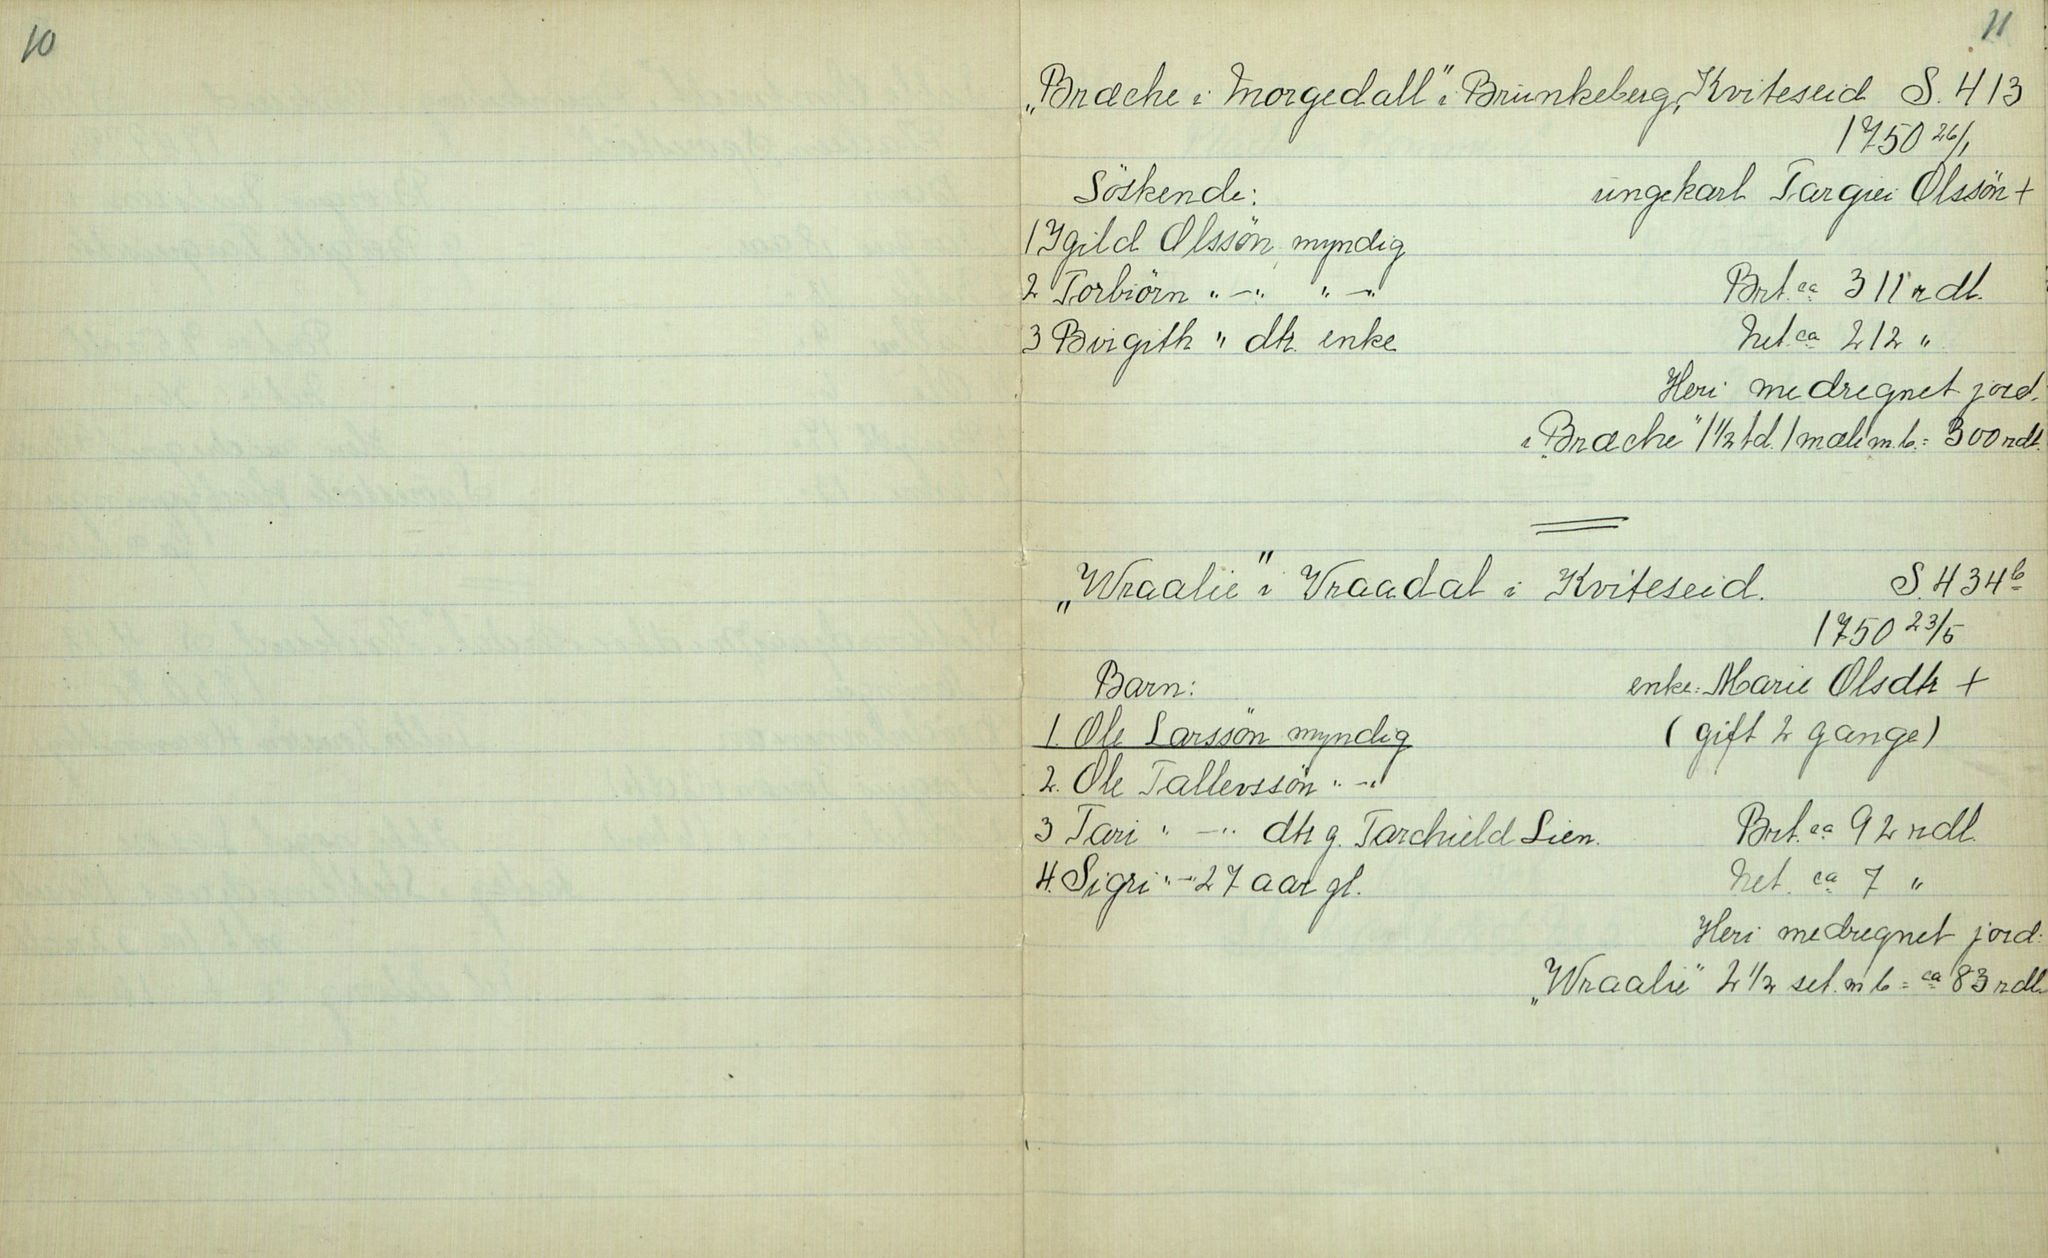 10
11
„Bræche i Morgedall" i Brunkeberg, Kviteseid S. 413
1750 26/1
Söskende: ungekarl Targiei Olssön +
1 Igild Olssön myndig
2 Torbiörn " - " " - " Brt. ca 311 rdl.
3 Birgith " dtr. enke Net. ca 212 "
Heri medregnet jord.
i „Bræche" 1 1/2 td. 1 mæle m.b. = 300 rdl.
„Wraalie" i Vraadal i Kviteseid. S. 434 b
1750 23/5
Barn: enke: Marie Olsdtr +
1. Ole Larssön myndig (gift 2 gange)
2. Ole Tallevssön " - "
3 Tari " - " dtr g. Tarchield Lien. Brt. ca 92 rdl.
4. Sigri " - " 27 aar gl. Net. ca 7 "
Heri medregnet jord:
„Wraalie" 2 1/2 set. m b = ca 83 rdl.